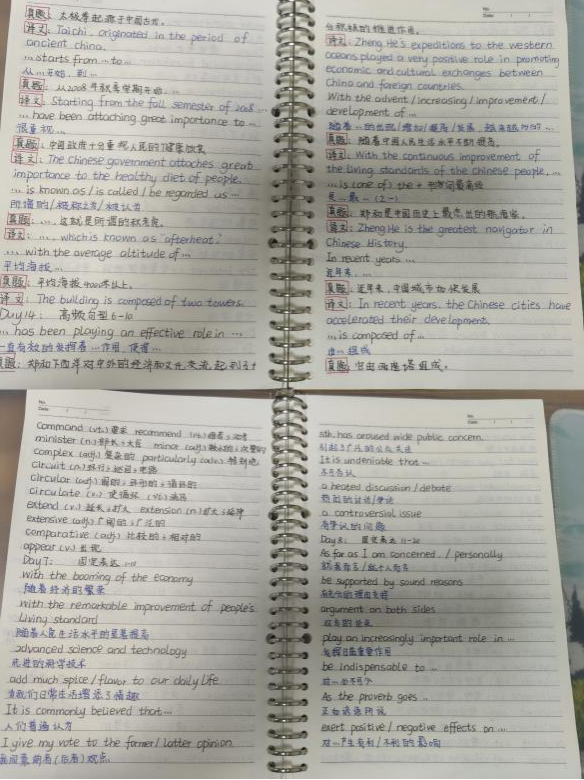 真题：太极拳起源于中国古代。
译文：Taichi, originated in the period of
ancient china.
...starts from ... to ...
从...开始，到...
真题：从2008年秋季学期开始...
译文：Starting from the fall semester of 2008...
... have been attaching great importance to ...
很重视...
真题：中国政府十分重视人民的健康饮食
译文：The Chinese government attaches great
importance to the healthy diet of people.
... is known as / is called / be regarded as ...
所谓的/被称为/被认为
真题：...，这就是所谓的秋老虎。
译文：..., which is known as "afterheat".
..., with the average altitude of ...
平均海拔...
真题：平均海拔4000米以上。
译文：The building is composed of two towers.
Day14: 高频句型 6-10
... has been playing an effective role in ...
一直有效的发挥着...作用，使得...
真题：郑和下西洋对中外的经济和文化交流起到了
译文：Zheng He's expeditions to the western
oceans played a very positive role in promoting
economic and cultural exchanges between
China and foreign countries.
With the advent / increasing / improvement /
development of ...
随着...的出现/增加/提高/发展，越来越...
真题：随着中国人民生活水平不断提高，
译文：With the continuous improvement of
the living standards of the Chinese people, ...
... is (one of) the + 形容词最高级
是...最...（之一）
真题：郑和是中国历史上最杰出的航海家。
译文：Zheng He is the greatest navigator in
Chinese History.
In recent years ...
近年来，...
真题：近年来，中国城市加快发展
译文：In recent years, the Chinese cities have
accelerated their development.
... is composed of ...
由...组成
真题：它由两座塔组成。
command (vt.) 要求 recommend (vt.)
minister (n.) 部长，大臣 minor (adj.)
complex (adj.) 复杂的 particularly (adv.) 特别地
circuit (n.) 环行，巡回，电路
circular (adj.) 圆的，环形的，循环的
circulate (v.) 使循环 (vt.) 流传
Extend (v.) 延长，扩大 extension (n.) 扩大，延伸
extensive (adj.) 广阔的，广泛的
comparative (adj.) 比较的，相对的
appear (v.) 出现
Day7: 固定表达 1-10
with the booming of the economy
随着经济的繁荣
with the remarkable improvement of people's
living standard
随着人民生活水平的显著提高
advanced science and technology
先进的科学技术
add much spice / flavor to our daily life
给我们日常生活增添了情趣
It is commonly believed that...
人们普遍认为
I give my vote to the former / latter opinion.
我同意前者（后者）观点。
sth. has aroused wide public concern.
引起了广泛的公众关注
It is undeniable that ...
不可否认
a heated discussion / debate
热烈的讨论/争论
a controversial issue
有争议的问题
Day8: 固定表达 11-20
As far as I am concerned / personally
就我而言/就个人而言
be supported by sound reasons
有充分的理由支持
argument on both sides
双方的论点
play an increasingly important role in ...
发挥日益重要作用
be indispensable to ...
对...必不可少
As the proverb goes ..
正如谚语所说
exert positive / negative effects on ...
对...产生有利/不利的影响